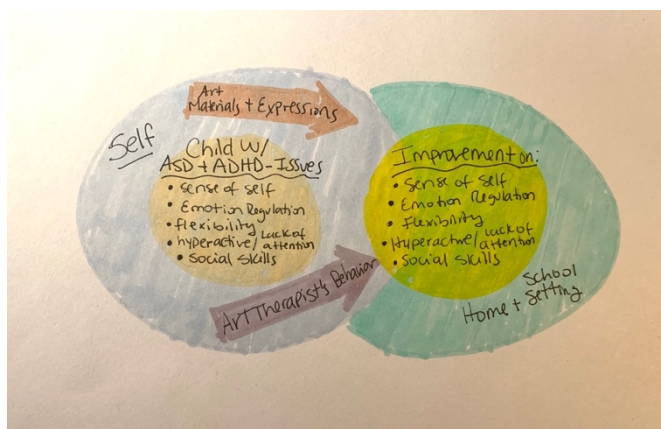 Art
Materials + Expressions
Self
Child w/
ASD + ADHD - Issues
• sense of self
• Emotion Regulation
• flexibility
• hyperactive/ Lack of
attention
• social skills
Art Therapist's Behavior
Improvement on:
• Sense of Self
• Emotion Regulation
• Flexibility
• Hyperactive/ Lack of
attention
• Social Skills
School
Home + Setting